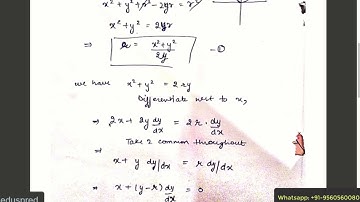 x² + y² + r² - 2yr = r²
x² + y² = 2yr
⇒ r = x² + y² / 2y - ①
we have x² + y² = 2ry
Differentiate wrt to x,
⇒ 2x + 2y dy/dx = 2r · dy/dx
Take 2 common throughout
⇒ x + y dy/dx = r dy/dx
⇒ x + (y-r) dy/dx = 0
eduspred
Whatsapp: +91-9560560080